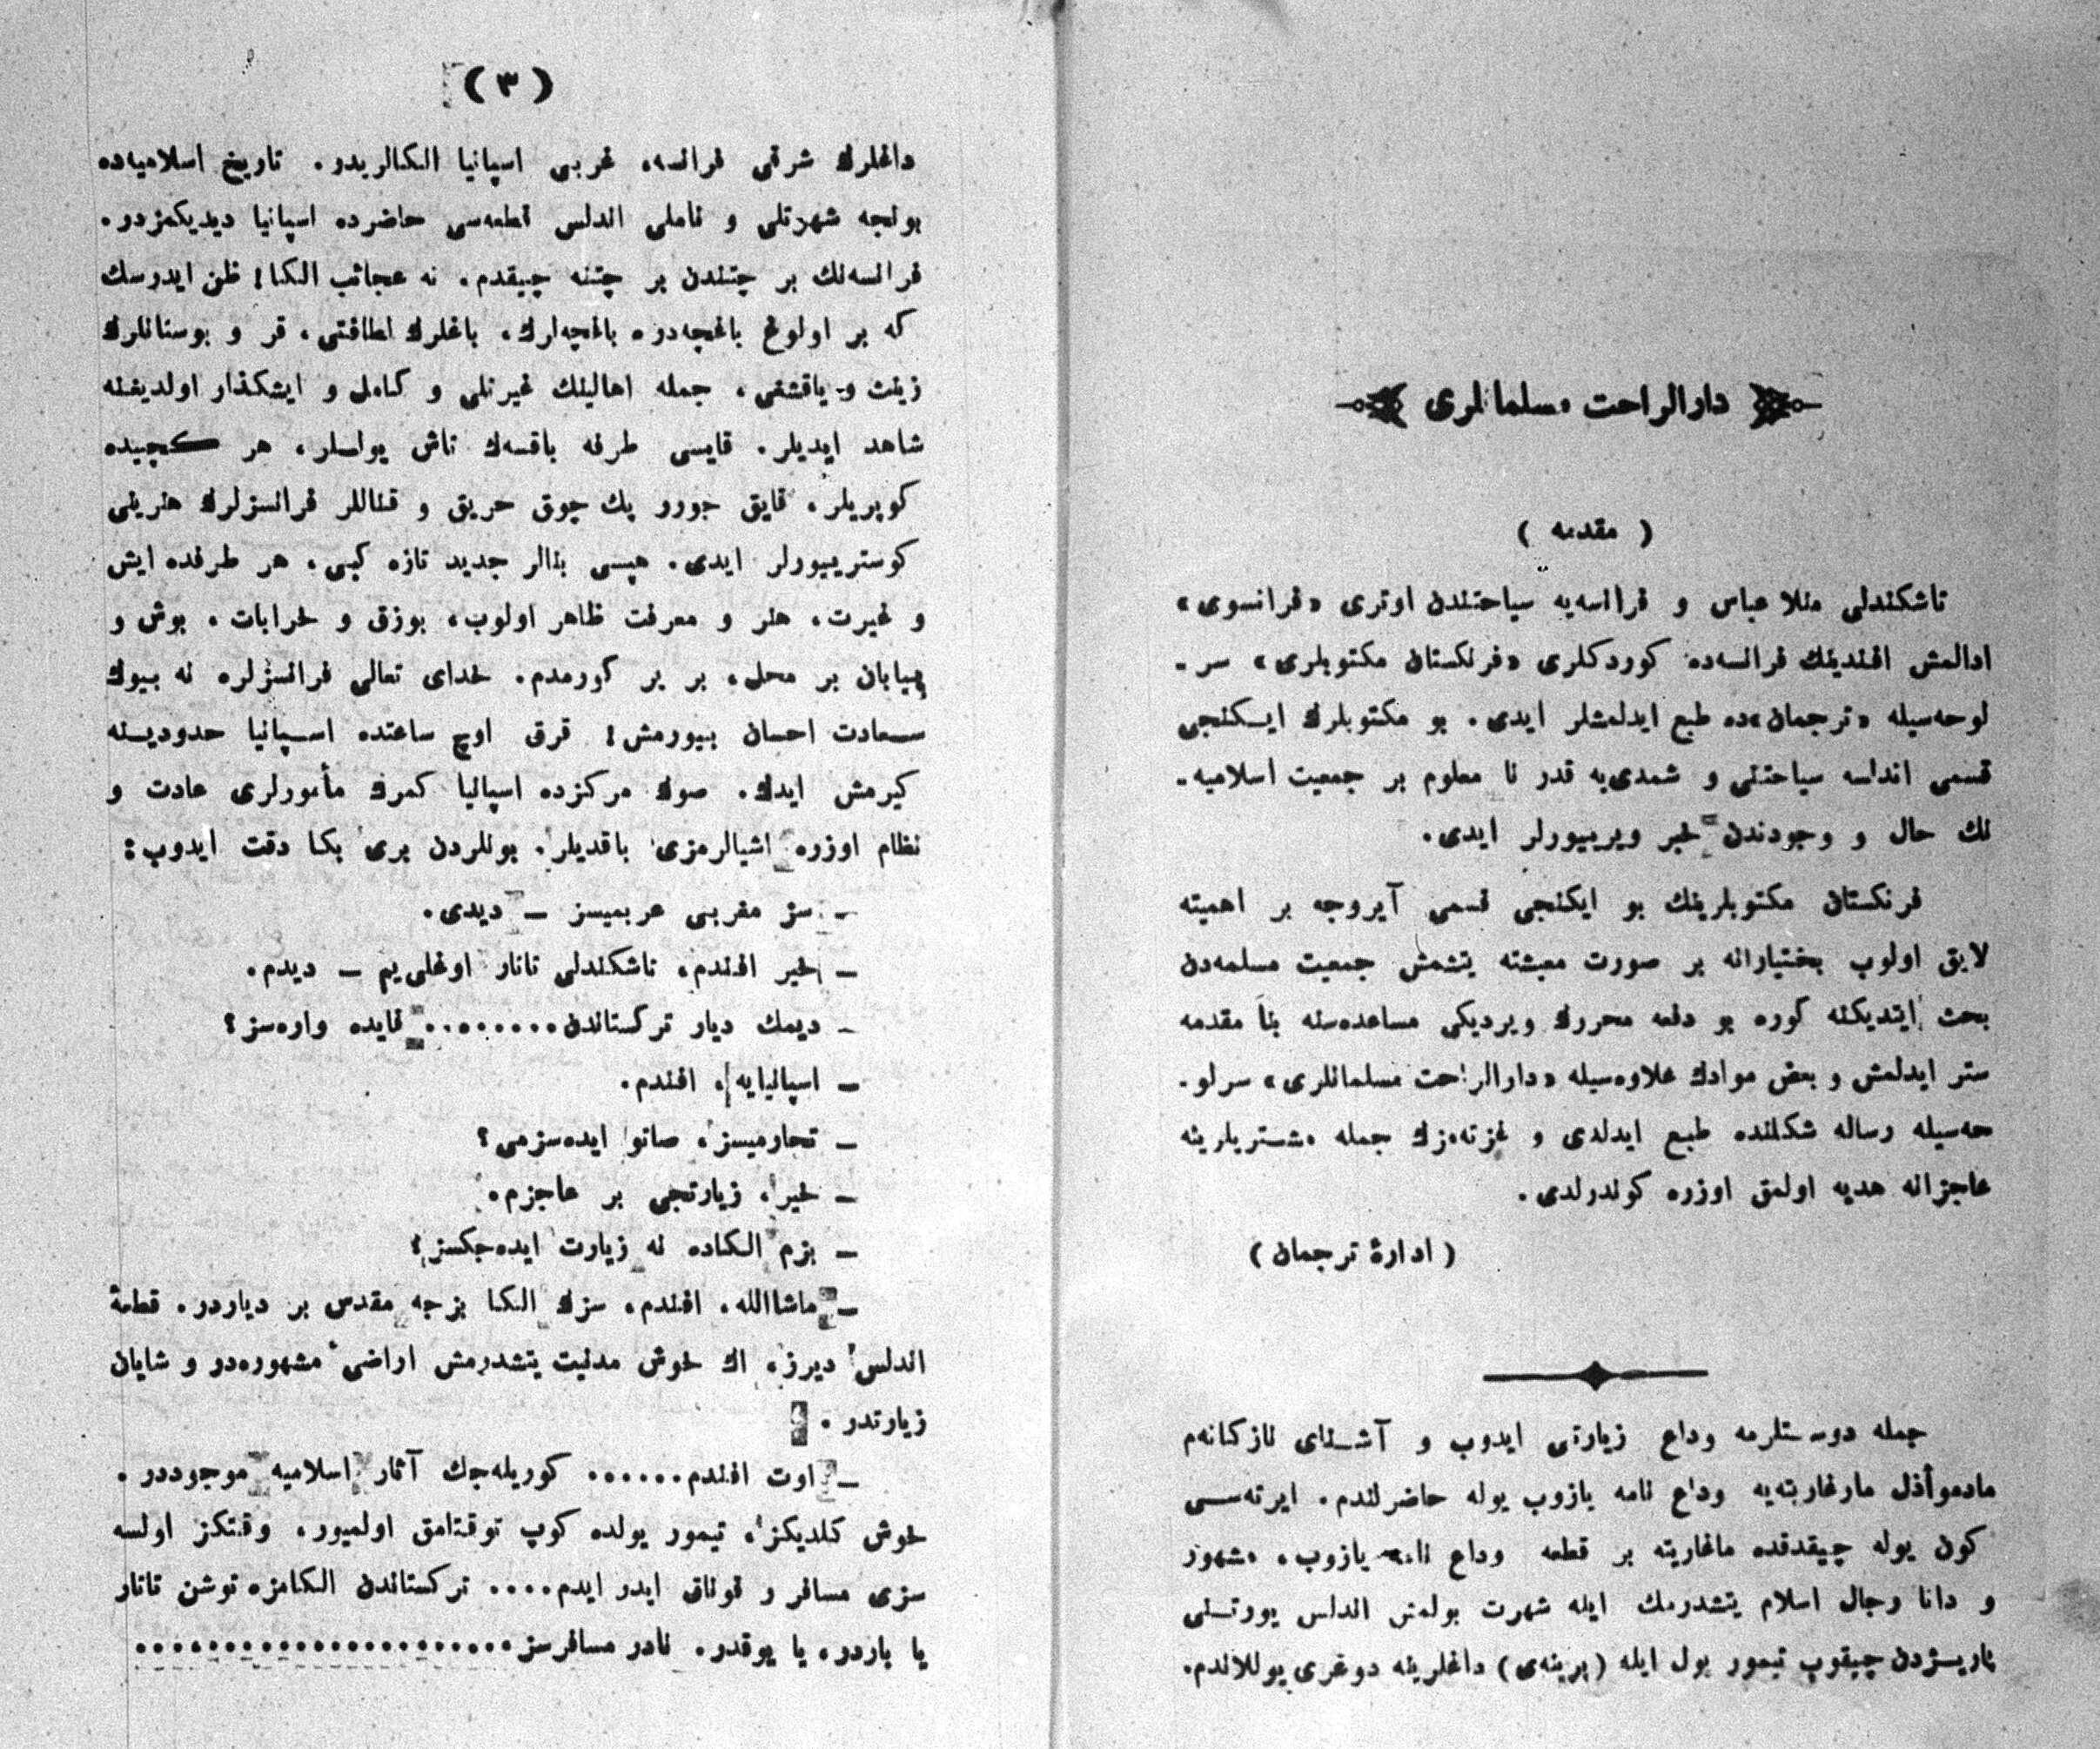 دارالراحت مسلمانلری
( مقدمه )
تاشکندلی منلا عباس و فرانسه‌یه سیاحتندن اوتری «فرانسوی»
ادالمش افندینك فرانسه‌ده کوردکلری «فرنکستان مکتوبلری» سر ـ
لوحه‌سیله «ترجمان»ده طبع ایدلمشلر ایدی. بو مکتوبلرك ایـکنجی
قسمی انداسه سیاحتنی و شمدی‌یه قدر نا معلوم بر جمعیت اسلامیه ـ
نك حال و وجودندن خبر ویرییورلر ایدی.
فرنکستان مکتوبلرینك بو ایکنجی قسمی آیروجه بر اهمیته
لایق اولوب بختیارانه بر صورت معیشته یتشمش جمعیت مسلمه‌دن
بحث ایتدیکنه کوره بو دفعه محررك ویردیکی مساعده‌سنه بناً مقدمه
ستر ایدلمش و بعض موادك علاوه‌سیله «دارالراحت مسلمانلری» سرلو ـ
حه‌سیله رساله شکلنده طبع ایدلدی و غزته‌مزك جمله مشتریلرینه
عاجزانه هدیه اولمق اوزره کوندرلدی.
( ادارهٔ ترجمان )
جمله دوستلرمه وداع زیارتی ایدوب و آشنای نازکانه‌م
مادموأذل مارغاریته‌یه وداع نامه یازوب یوله حاضرلندم. ایرته‌سی
کون یوله چیقدقده ماغاریته بر قطعه وداع نامه یازوب، مشهور
و دانا رجال اسلام یتشدرمك ایله شهرت بولمش اندلس یورتـنی
پاریـژدن چیقوب تیمور یول ایله (پرینه‌ی) داغلرینه دوغری یوللاندم.
( ٣ )
داغلرك شرقی فرانسه، غربی اسپانیا الکالریدر. تاریخ اسلامیه‌ده
بونجه شهرتلی و ناملی اندلس قطعه‌سی حاضرده اسپانیا دیدیکمزدر.
فرانسه‌نك بر چتندن بر چتنه چیقدم. نه عجائب الکا! ظن ایدرسك
که بر اولوغ باغچه‌دره باغچه‌لرك، باغلرك لطافتی، قر و بوستانلرك
زینت و یاقشغی، جمله اهالینك غیرتلی و کامل و ایشکذار اولدیغنه
شاهد ایدیلر. قایسی طرفه باقسه‌ك تاش یوللـر، هر کـچیده
کوپریلر، قایق جورر پك چوق حریق و قناللر فرانسزلرك هنرینی
کوسترییورلر ایدی. هپسی بنالر جدید تازه کبی. هر طرفده ایش
و غیرت، هنر و معرفت ظاهر اولوب، بوزق و خرابات، بوش و
بیابان بر محل، بر یر کورمدم. خدای تعالی فرانسزلره نه بیوك
سـعادت احسان بیورمش! قرق اوچ ساعتده اسـپانیا حدودیـنه
کیرمش ایدك. صوك مرکزده اسپانیا کمرك مأمورلری عادت و
نظام اوزره اشیالرمزی باقدیلر. بونلردن بری بکا دقت ایدوب:
ـ سز مغربی عربمیسز ـ دیدی.
ـ خیر افندم، تاشکندلی تاتار اوغلی‌یم ـ دیدم.
ـ دیمك دیار ترکستاندن......... قایده واره‌سز؟
ـ اسپانیایه، افندم.
ـ تجارمیسز، صاتو ایده‌سزمی؟
ـ خیر، زیارتجی بر عاجزم.
ـ بزم الکاده نه زیارت ایده‌جکسز؟
ـ ماشاالله، افندم، سزك الکا بزجه مقدس بر دیاردر. قطعهٔ
اندلس دیرز، اك خوش مدنیت یتشدرمش اراضیٴ مشهوره‌در و شایان
زیارتدر.
ـ اوت افندم...... کوریله‌جك آثار اسلامیه موجوددر.
خوش کلدیکز، تیمور یولده کوپ توقتامق اولمیور، وقتکز اولسه
سزی مسافر و قوناق ایدر ایدم.... ترکستاندن الکامزه توشن تاتار
یا باردر، یا یوقدر. نادر مسافرسز......................